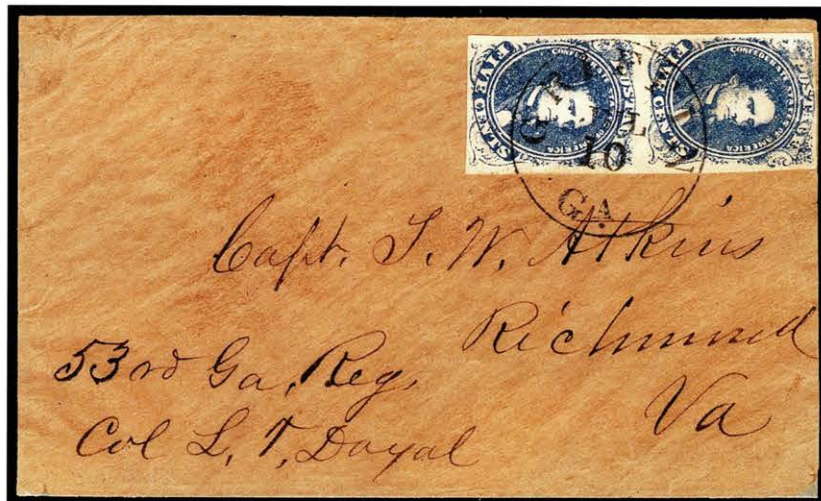 FIVE CENTS
CONFEDERATE STATES OF AMERICA
POSTAGE
FIVE CENTS
CONFEDERATE STATES OF AMERICA
POSTAGE
10
GA.
Capt. T. W. Atkins
Richmond
Va
53rd Ga, Reg,
Col L, T, Doyal